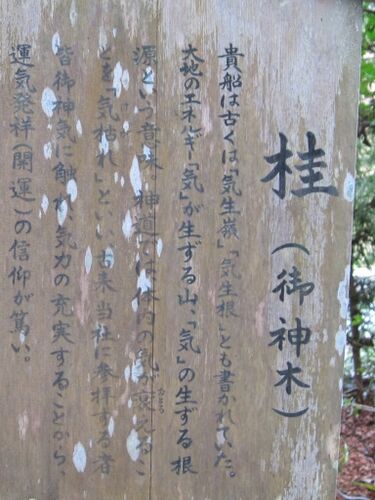 桂（御神木）
貴船は古くは「気生嶺」「気生根」とも書かれていた。
大地のエネルギー「気」が生ずる山、「気」の生ずる根
源という意味。神道では体内の気が衰えるこ
とを「気枯れ」といい、古来、当社に参拝する者
皆御神気に触れ、気力の充実することから、
運気発祥（開運）の信仰が篤い。